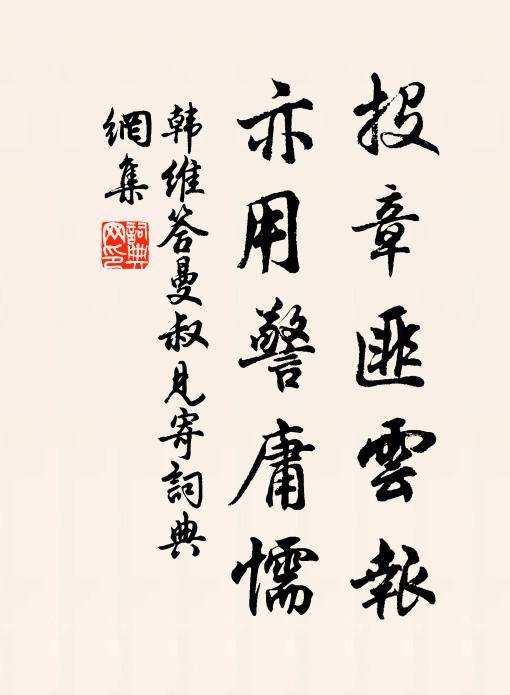 投章匪雲報
亦用警庸懦
韩维答曼叔見寄詞典
網集
詞典
网印